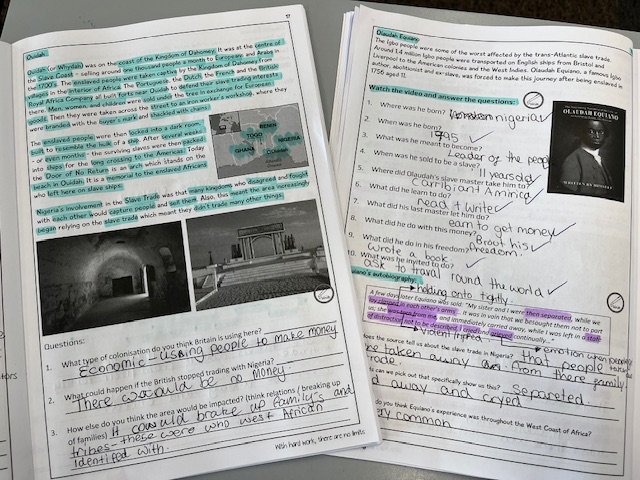 17
Ouidah
Ouidah (or Whydah) was on the coast of the Kingdom of Dahomey. It was at the centre of
the Slave Coast - selling around one thousand people a month to Europeans and Arabs in
the 1700's. The enslaved people were taken captive by the Kingdom of Dahomey from
villages in the interior of Africa. The Portuguese, the Dutch, the French and the British
Royal Africa Company all built forts near Ouidah to defend their slave trading interests
there. Men, women, and children were sold under the tree in exchange for European
goods. Then they were taken across the street to an iron worker's workshop, where they
were branded with the buyer's mark and shackled with chains.
The enslaved people were then locked into a dark room,
built to resemble the hulk of a ship. After several weeks
- or even months - the surviving slaves were then packed
into ships for the long crossing to the Americas. Today
the Door of No Return is an arch which stands on the
beach in Ouidah. It is a memorial to the enslaved Africans
who left here on slave ships.
BENIN
TOGO
GHANA
NIGERIA
Nigeria's involvement in the Slave Trade was that many kingdoms who disagreed and fought
with each other would capture people and sell them. Also, this meant the area increasingly
began relying on the slave trade which meant they didn't trade many other things.
Questions:
1. What type of colonisation do you think Britain is using here?
Economic - using people to make money
2. What could happen if the British stopped trading with Nigeria?
There would be no money.
3. How else do you think the area would be impacted? (think relations / breaking up
of families) It cowuld brake up family's and
tribes - these were who west African
Identifed with.
With hard work, there are no limits
Olaudah Equiano
The Igbo people were some of the worst affected by the trans-Atlantic slave trade.
Around 1.4 million Igbo people were transported on English ships from Bristol and
Liverpool to the American colonies and the West Indies. Olaudah Equiano, a famous Igbo
author, abolitionist and ex-slave, was forced to make this journey after being enslaved in
1756 aged 11.
Watch the video and answer the questions:
1. Where was he born? nigeria
2. When was he born?
1745
3. What was he meant to become?
Leader of the peopl
4. When was he sold to be a slave?
11 years old
5. Where did Olaudah's slave master take him to?
Carribian America
6. What did he learn to do?
read + write
7. What did his last master let him do?
earn to get money
8. What did he do with this money?
Brout his
freedom.
9. What did he do in his freedom?
wrote a book
10. What was he invited to do?
ask to travel round the world
OLAUDAH EQUIANO
WRITTEN BY HIMSELF
uiano's autobiography.
holding onto tightly
A few days later Equiano was said: "My sister and I were then separated, while we
lay clasped in each other's arms. It was in vain that we besought them not to part
us; she was torn from me and immediately carried away, while I was left in a state
of distraction not to be described. I cried and grieved continually..."
violent ripped
emotion when people
does the source tell us about the slave trade in Nigeria? that people take
be taken away from there family
can we pick out that specifically show us this? separated.
d away and cryed
do you think Equiano's experience was throughout the West Coast of Africa?
ery common